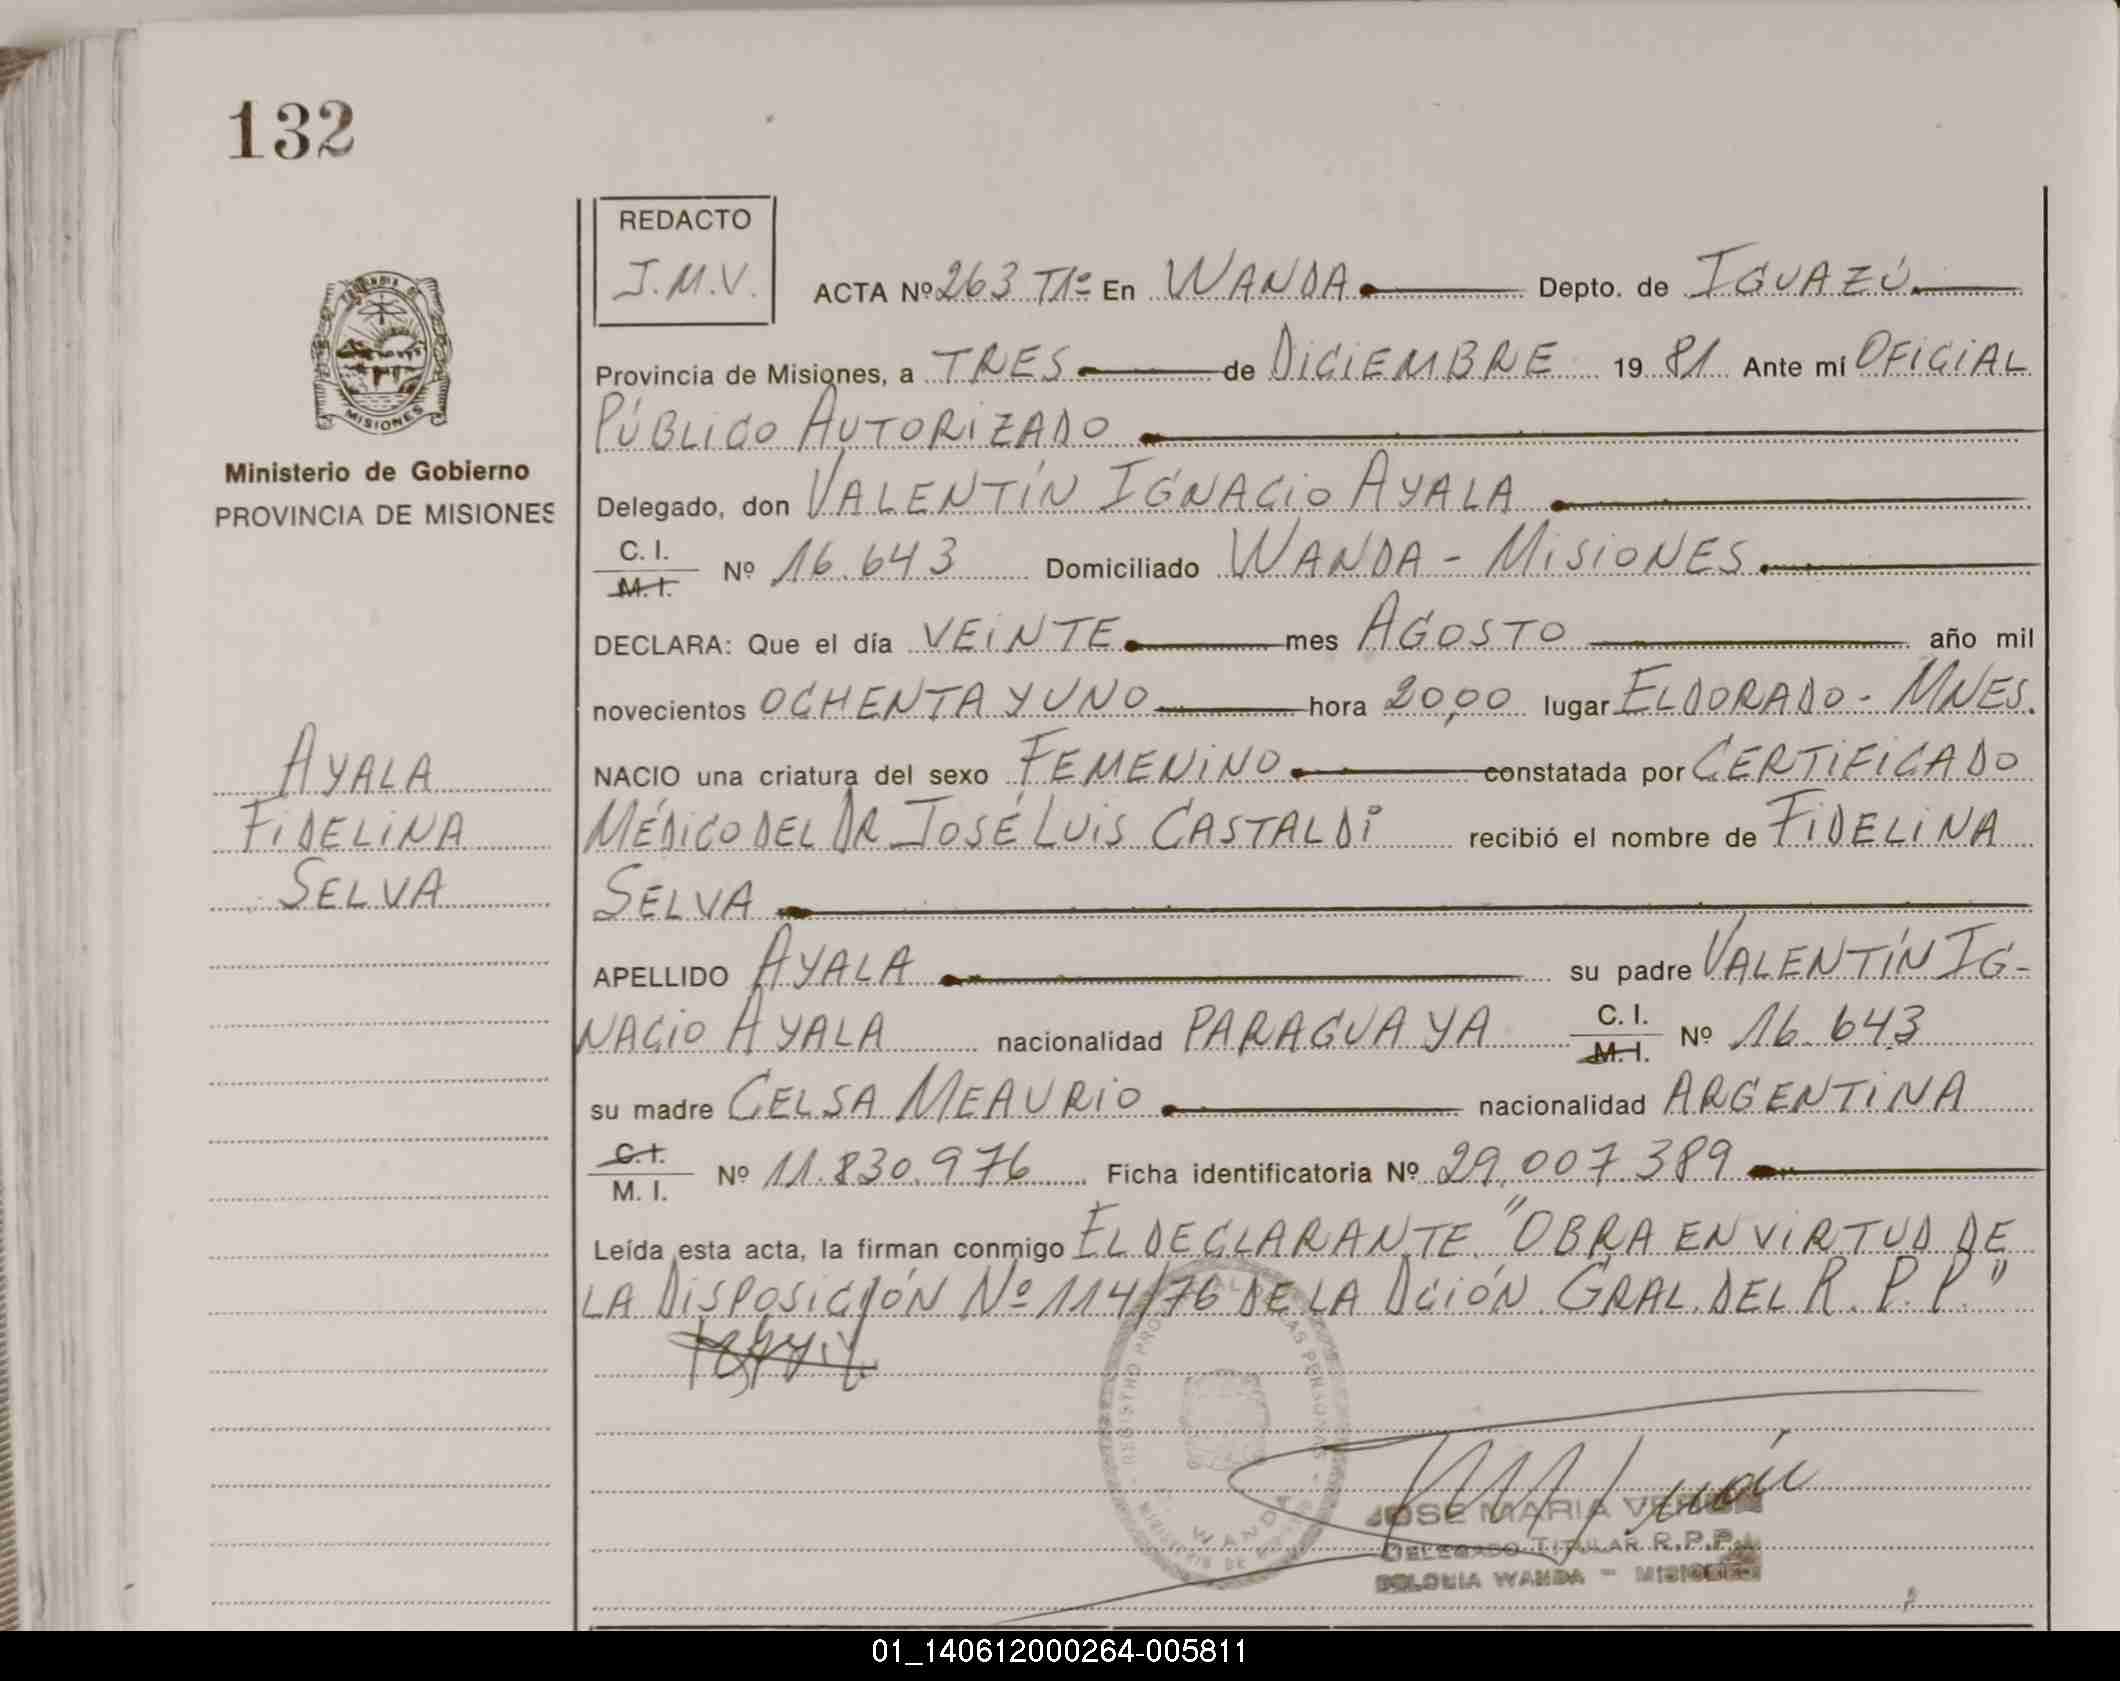 132
REDACTO
J.M.V.
ACTA Nº 263 T1º En WANDA Depto. de IGUAZÚ
Provincia de Misiones, a TRES de DICIEMBRE 1981 Ante mi OFICIAL
PÚBLICO AUTORIZADO
Delegado, don VALENTÍN IGNACIO AYALA
C. I.
M. I. Nº 16.643 Domiciliado WANDA - MISIONES
DECLARA: Que el día VEINTE mes AGOSTO año mil
novecientos OCHENTA Y UNO hora 20,00 lugar ELDORADO - MNES.
NACIO una criatura del sexo FEMENINO constatada por CERTIFICADO
MÉDICO DEL DR JOSÉ LUIS CASTALDI recibió el nombre de FIDELINA
SELVA
APELLIDO AYALA su padre VALENTÍN IG-
NACIO AYALA nacionalidad PARAGUAYA C. I.
M. I. Nº 16.643
su madre CELSA MEAURIO nacionalidad ARGENTINA
C. I.
M. I. Nº 11.830.976 Ficha identificatoria Nº 29.007.389
Leída esta acta, la firman conmigo EL DECLARANTE. "OBRA EN VIRTUD DE
LA DISPOSICIÓN Nº 114/76 DE LA DCIÓN. GRAL. DEL R. P. P."
MISIONES
Ministerio de Gobierno
PROVINCIA DE MISIONES
AYALA
FIDELINA
SELVA
WANDA
JOSE MARIA
DELEGADO TITULAR R.P.P.
COLONIA WANDA - MISIONES
01_140612000264-005811